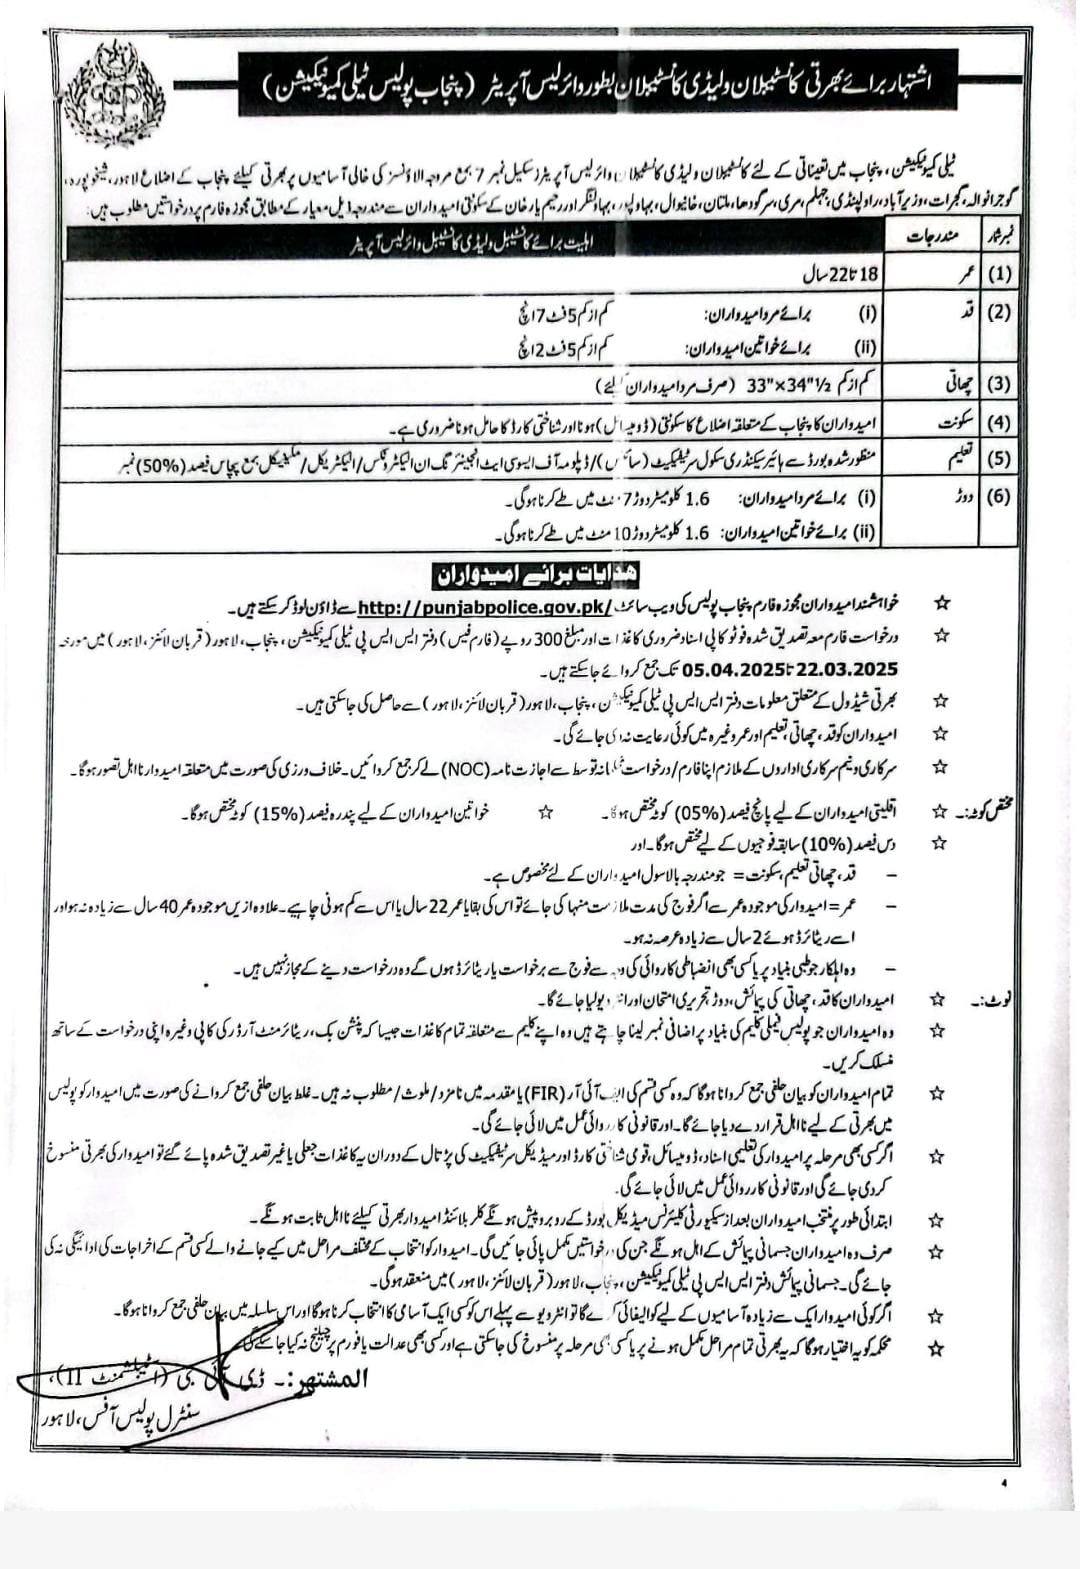 اشتہار برائے بھرتی کانسٹیبلان ولیڈی کانسٹیبلان بطور وائرلیس آپریٹر (پنجاب پولیس ٹیلی کمیونیکیشن)
ٹیلی کمیونیکیشن، پنجاب میں تعیناتی کے لئے کانسٹیبلان ولیڈی کانسٹیبلان وائرلیس آپریٹرز سکیل نمبر 7 بمع مروجہ الاؤنسز کی خالی آسامیوں پر بھرتی کیلئے پنجاب کے اضلاع لاہور، شیخوپورہ،
گوجرانوالہ، گجرات، وزیرآباد، راولپنڈی، جہلم، مری، سرگودھا، ملتان، خانیوال، بہاولپور، بہاولنگر اور رحیم یار خان کے سکونتی امیدواران سے مندرجہ ذیل معیار کے مطابق مجوزہ فارم پر درخواستیں مطلوب ہیں:
نمبر شمار مندرجات اہلیت برائے کانسٹیبل ولیڈی کانسٹیبل وائرلیس آپریٹر
(1) عمر 18 تا 22 سال
(2) قد (i) برائے مرد امیدواران: کم از کم 5 فٹ 7 انچ
(ii) برائے خواتین امیدواران: کم از کم 5 فٹ 2 انچ
(3) چھاتی کم از کم 33"×34"½ (صرف مرد امیدواران کیلئے)
(4) سکونت امیدواران کا پنجاب کے متعلقہ اضلاع کا سکونتی (ڈومیسائل) ہونا اور شناختی کارڈ کا حامل ہونا ضروری ہے۔
(5) تعلیم منظور شدہ بورڈ سے ہائیر سیکنڈری سکول سرٹیفکیٹ (سائنس)/ڈپلومہ آف ایسوسی ایٹ انجینئرنگ ان الیکٹرونکس/الیکٹریکل/مکینیکل بمع پچاس فیصد (50%) نمبر
(6) دوڑ (i) برائے مرد امیدواران: 1.6 کلومیٹر دوڑ 7 منٹ میں طے کرنا ہوگی۔
(ii) برائے خواتین امیدواران: 1.6 کلومیٹر دوڑ 10 منٹ میں طے کرنا ہوگی۔
ھدایات برائے امیدواران
☆ خواہشمند امیدواران مجوزہ فارم پنجاب پولیس کی ویب سائٹ http://punjabpolice.gov.pk/ سے ڈاؤن لوڈ کر سکتے ہیں۔
☆ درخواست فارم معہ تصدیق شدہ فوٹو کاپی اسناد ضروری کاغذات اور مبلغ 300 روپے (فارم فیس) دفتر ایس ایس پی ٹیلی کمیونیکیشن، پنجاب، لاہور (قربان لائنز، لاہور) میں مورخہ
22.03.2025 تا 05.04.2025 تک جمع کروائے جا سکتے ہیں۔
☆ بھرتی شیڈول کے متعلق معلومات دفتر ایس ایس پی ٹیلی کمیونیکیشن، پنجاب، لاہور (قربان لائنز، لاہور) سے حاصل کی جا سکتی ہیں۔
☆ امیدواران کو قد، چھاتی، تعلیم اور عمر وغیرہ میں کوئی رعایت نہ دی جائے گی۔
☆ سرکاری و نیم سرکاری اداروں کے ملازم اپنا فارم/درخواست محکمانہ توسط سے اجازت نامہ (NOC) لے کر جمع کروائیں۔ خلاف ورزی کی صورت میں متعلقہ امیدوار نااہل تصور ہوگا۔
مختص کوٹہ:۔ ☆ اقلیتی امیدواران کے لیے پانچ فیصد (05%) کوٹہ مختص ہوگا۔ ☆ خواتین امیدواران کے لیے پندرہ فیصد (15%) کوٹہ مختص ہوگا۔
☆ دس فیصد (10%) سابقہ فوجیوں کے لیے مختص ہوگا۔ اور
– قد، چھاتی، تعلیم، سکونت = جو مندرجہ بالا سول امیدواران کے لئے مخصوص ہے۔
– عمر = امیدوار کی موجودہ عمر سے اگر فوج کی مدت ملازمت منہا کی جائے تو اس کی بقایا عمر 22 سال یا اس سے کم ہونی چاہیے۔ علاوہ ازیں موجودہ عمر 40 سال سے زیادہ نہ ہو اور
اسے ریٹائرڈ ہوئے 2 سال سے زیادہ عرصہ نہ ہو۔
– وہ اہلکار جو طبی بنیاد پر یا کسی بھی انضباطی کاروائی کی وجہ سے فوج سے برخواست یا ریٹائرڈ ہوں گے وہ درخواست دینے کے مجاز نہیں ہیں۔
نوٹ:۔ ☆ امیدواران کا قد، چھاتی کی پیمائش، دوڑ، تحریری امتحان اور انٹرویو لیا جائے گا۔
☆ وہ امیدواران جو پولیس فیملی کلیم کی بنیاد پر اضافی نمبر لینا چاہتے ہیں وہ اپنے کلیم سے متعلقہ تمام کاغذات جیسا کہ پنشن بک، ریٹائرمنٹ آرڈر کی کاپی وغیرہ اپنی درخواست کے ساتھ
منسلک کریں۔
☆ تمام امیدواران کو بیان حلفی جمع کروانا ہوگا کہ وہ کسی قسم کی ایف آئی آر (FIR) یا مقدمہ میں نامزد/ملوث/مطلوب نہ ہیں۔ غلط بیان حلفی جمع کروانے کی صورت میں امیدوار کو پولیس
میں بھرتی کے لیے نااہل قرار دے دیا جائے گا۔ اور قانونی کارروائی عمل میں لائی جائے گی۔
☆ اگر کسی بھی مرحلہ پر امیدوار کی تعلیمی اسناد، ڈومیسائل، قومی شناختی کارڈ اور میڈیکل سرٹیفکیٹ کی پڑتال کے دوران یہ کاغذات جعلی یا غیر تصدیق شدہ پائے گئے تو امیدوار کی بھرتی منسوخ
کر دی جائے گی اور قانونی کارروائی عمل میں لائی جائے گی۔
☆ ابتدائی طور پر منتخب امیدواران بعد از سیکیورٹی کلیئرنس میڈیکل بورڈ کے روبرو پیش ہونگے کلر بلائنڈ امیدوار بھرتی کیلئے نااہل ثابت ہونگے۔
☆ صرف وہ امیدواران جسمانی پیمائش کے اہل ہونگے جن کی درخواستیں مکمل پائی جائیں گی۔ امیدوار کو انتخاب کے مختلف مراحل میں کیے جانے والے کسی قسم کے اخراجات کی ادائیگی نہ کی
جائے گی۔ جسمانی پیمائش دفتر ایس ایس پی ٹیلی کمیونیکیشن، پنجاب، لاہور (قربان لائنز، لاہور) میں منعقد ہوگی۔
☆ اگر کوئی امیدوار ایک سے زیادہ آسامیوں کے لیے کوالیفائی کرے گا تو انٹرویو سے پہلے اس کو کسی ایک آسامی کا انتخاب کرنا ہوگا اور اس سلسلہ میں بیان حلفی جمع کروانا ہوگا۔
☆ محکمہ کو یہ اختیار ہوگا کہ یہ بھرتی تمام مراحل مکمل ہونے پر یا کسی بھی مرحلہ پر منسوخ کی جا سکتی ہے اور کسی بھی عدالت یا فورم پر چیلنج نہ کیا جا سکے گا۔
المشتہر:۔ ڈی آئی جی (اسٹیبلشمنٹ II)،
سنٹرل پولیس آفس، لاہور
4